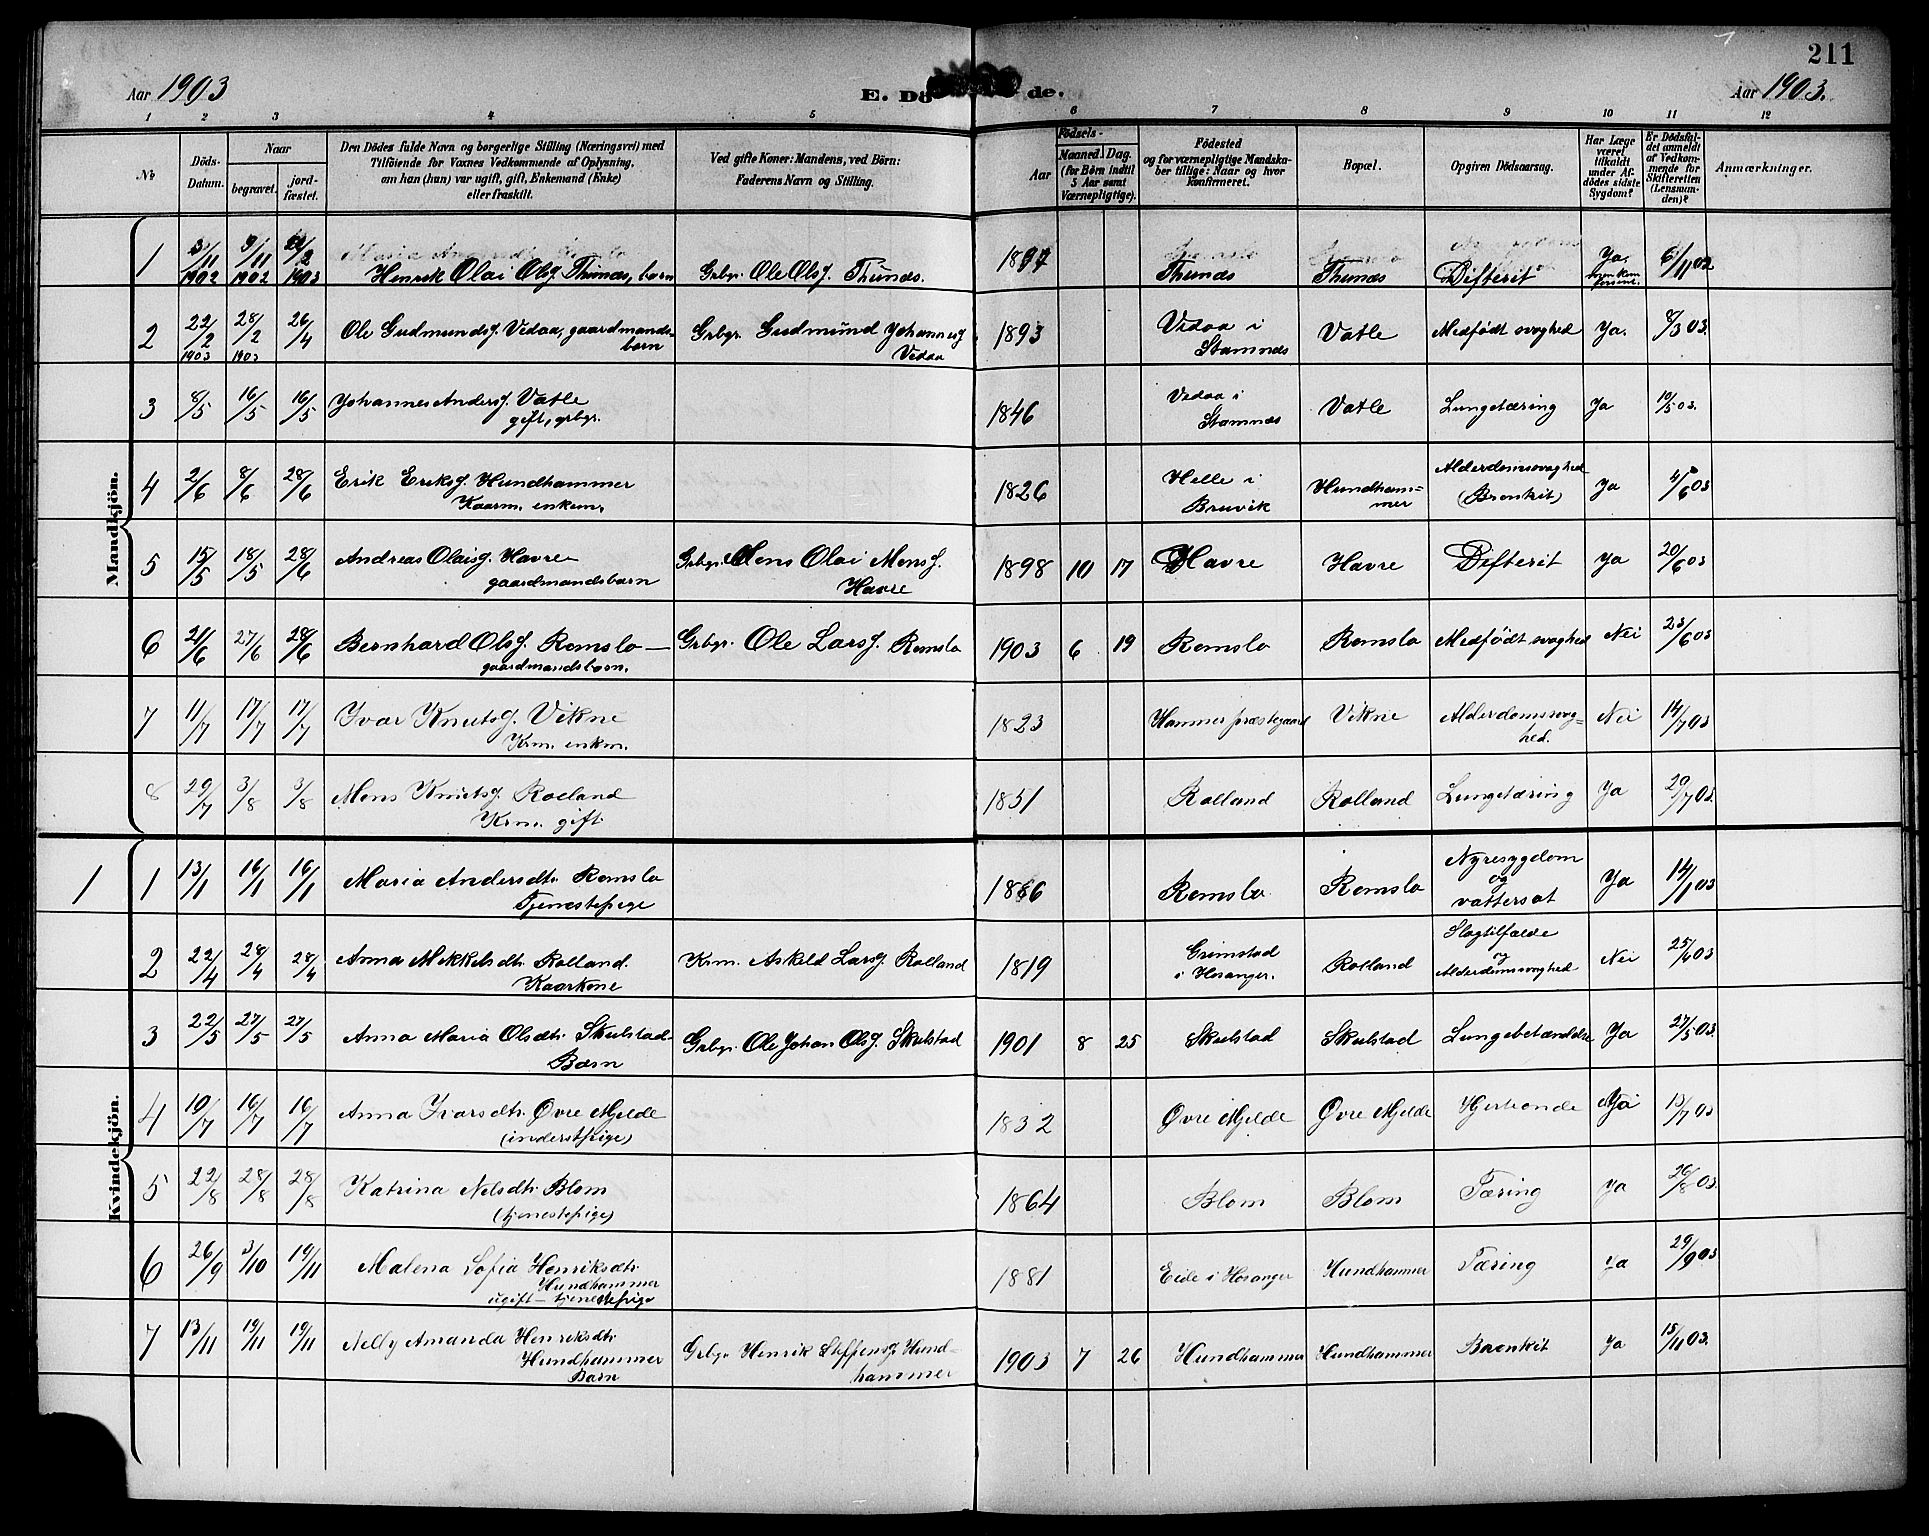 211
Aar 1903
E. Dö de.
Aar 1903.
1 2 3 4 5 6 7 8 9 10 11 12
No
Döds-
Datum.
Naar
begravet.
jord-
fæstet.
Den Dödes fulde Navn og borgerlige Stilling (Næringsvei) med
Tilföiende for Voxnes Vedkommende af Oplysning,
om han (hun) var ugift, gift, Enkemand (Enke)
eller fraskilt.
Ved gifte Koner: Mandens, ved Börn:
Faderens Navn og Stilling.
Födsels-
Aar
Maaned. Dag.
(for Börn indtil
5 Aar samt
Værnepligtige).
Födested
og for værnepligtige Mandska-
ber tillige: Naar og hvor
konfirmeret.
Bopæl.
Opgiven Dödsaarsag.
Har Læge
været
tilkaldt
under Af-
dödes sidste
Sygdom?
Er Dödsfal-
det anmeldt
af Vedkom-
mende for
Skifteretten
(Lensman-
den)?
Anmærkninger.
Mandkjön.
1 3/11 1902 9/11 1902 22/2 1903 Henrik Olai Olsg. Thunæs, barn Grbgr. Ole Olsg. Thunæs. 1897 Thunæs Thunæs Difterit Ja. 6/11 02
2 22/2 1903 28/2 1903 26/4 Ole Gudmundsg. Vidaa, gaardmands-
barn Grbgr. Gudmund Johannesg
Vidaa 1893 Vidaa i
Stamnæs Vatle Medfödt svaghed Ja. 8/3 03.
3 8/5 16/5 16/5 Johannes Andersg. Vatle
gift, grbgr. 1846 Vidaa i
Stamnæs Vatle Lungetæring Ja 10/5 03.
4 2/6 8/6 28/6 Erik Eriksg. Hundhammer
Kaarm. enkem. 1826 Helle i
Bruvik Hundham-
mer Alderdomssvaghed
(Bronkit) Ja 4/6 03
5 15/5 18/5 28/6 Andreas Olaisg. Havre
gaardmandsbarn Grbgr. Mons Olai Monsg.
Havre 1898 10 17 Havre Havre Difterit Ja 20/6 03
6 21/6 27/6 28/6 Bernhard Olsg. Romslo
gaardmandsbarn. Grbgr. Ole Larsg. Romslo 1903 6 19 Romslo Romslo Medfödt svaghed Nei 23/6 03
7 11/7 17/7 17/7 Ivar Knutsg. Vikne
Krm. enkm. 1823 Hammer præstegaard Vikne Alderdomssvag-
hed. Nei 14/7 03
8 29/7 3/8 3/8 Mons Knutsg. Rolland
Krm. gift 1851 Rolland Rolland Lungetæring Ja 29/7 03.
Kvindekjön.
1 1 13/1 16/1 16/1 Maria Andersdtr. Romslo
Tjenestepige 1886 Romslo Romslo Nyresygdom
og
vattersot Ja 14/1 03
2 22/4 28/4 28/4 Anna Mikkelsdtr. Rolland.
Kaarkone Krm. Askild Larsg. Rolland 1819 Grimstad
i Hosanger. Rolland Slagtilfælde
og
Alderdomssvaghed Nei 25/6 03
3 22/5 27/5 27/5 Anna Maria Olsdtr. Skulstad
Barn Grbgr. Ole Johan Olsg. Skulstad 1901 8 25 Skulstad Skulstad Lungebetændelse Ja 27/5 03.
4 10/7 16/7 16/7 Anna Ivarsdtr. Øvre Mjelde
(inderstpige) 1832 Øvre Mjelde Øvre Mjelde Hjertonde 13/7 03
5 22/8 28/8 28/8 Katrina Nilsdtr. Blom
(tjenestepige) 1864 Blom Blom Tæring Ja 26/8 03.
6 26/9 3/10 19/11 Malena Sofia Henriksdtr.
Hundhammer
ugift - tjenestepige 1881 Eide i Hosanger Hundhammer Tæring Ja 29/9 03
7 13/11 19/11 19/11 Nelly Amanda Henriksdtr.
Hundhammer
Barn Grbgr. Henrik Steffensg. Hund-
hammer 1903 7 26 Hundhammer Hundhammer Bronkit Ja 15/11 03.